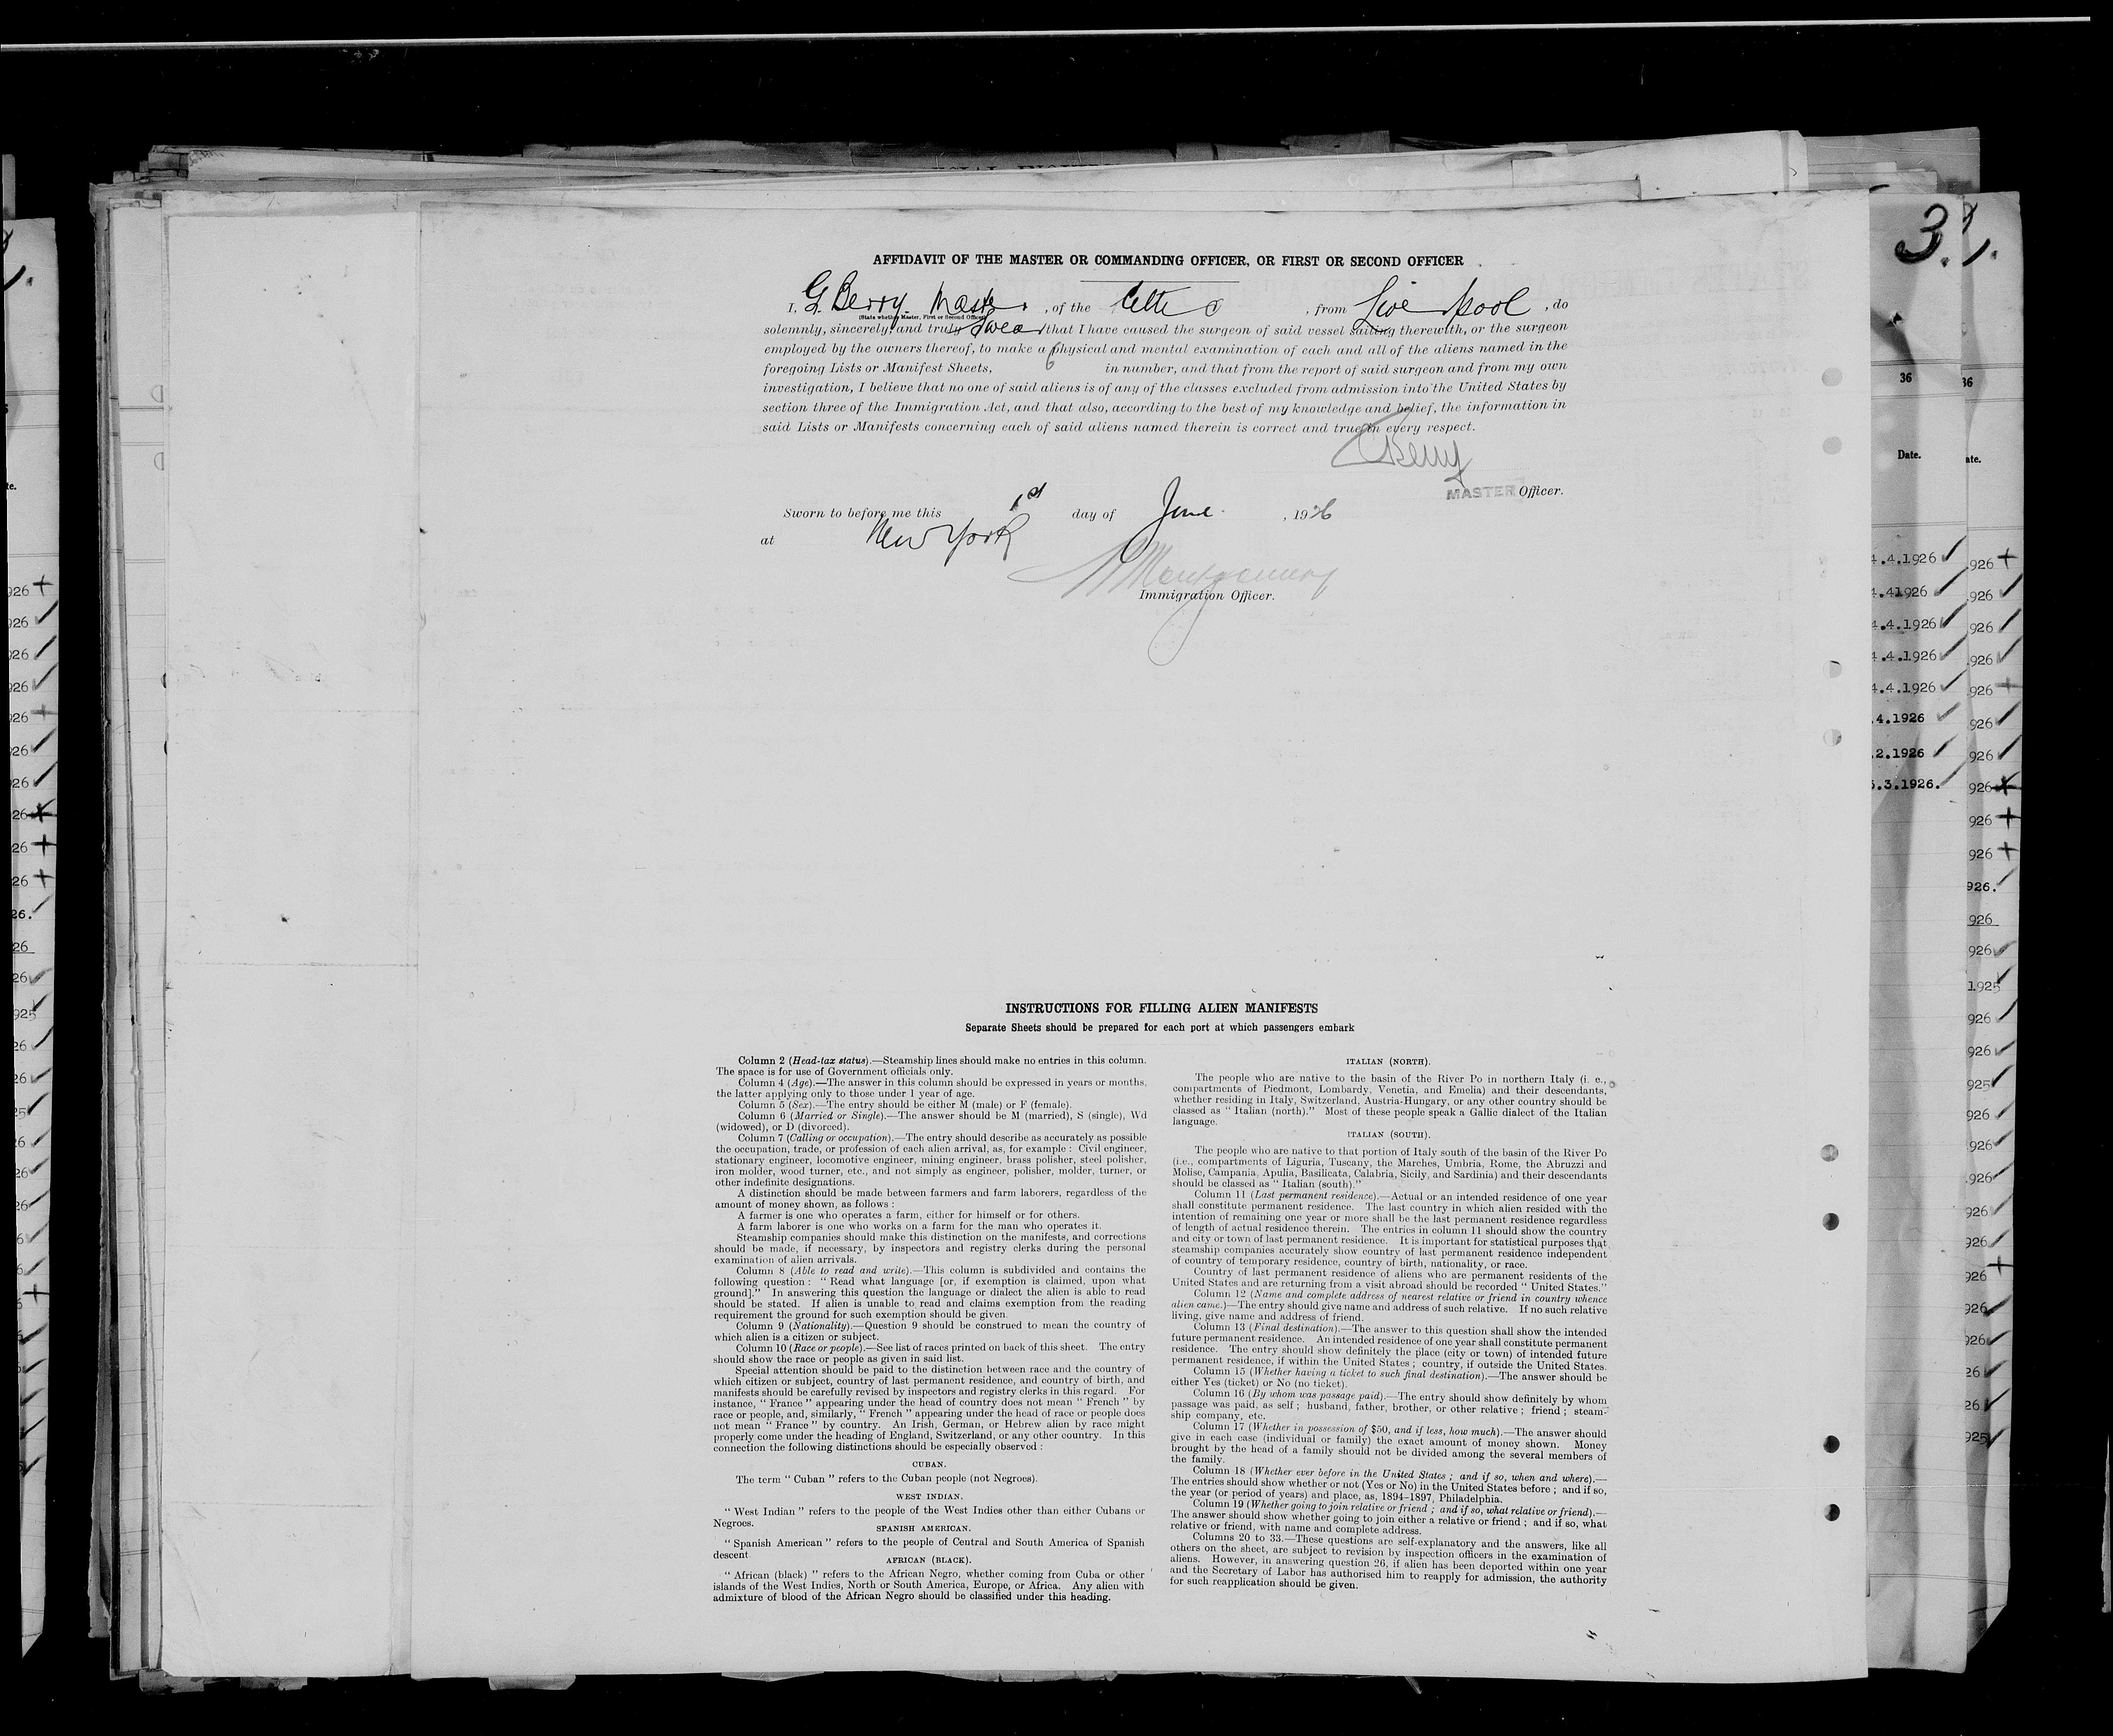 AFFIDAVIT OF THE MASTER OR COMMANDING OFFICER, OR FIRST OR SECOND OFFICER
I, G. Berry. Master, of the Celtic, from Liverpool, do
(State whether Master, First or Second Officer)
solemnly, sincerely, and truly swear that I have caused the surgeon of said vessel sailing therewith, or the surgeon
employed by the owners thereof, to make a physical and mental examination of each and all of the aliens named in the
foregoing Lists or Manifest Sheets, 6 in number, and that from the report of said surgeon and from my own
investigation, I believe that no one of said aliens is of any of the classes excluded from admission into the United States by
section three of the Immigration Act, and that also, according to the best of my knowledge and belief, the information in
said Lists or Manifests concerning each of said aliens named therein is correct and true in every respect.
G Berry
MASTER Officer.
Sworn to before me this 1st day of June, 1926
at New York
Montgomery
Immigration Officer.
INSTRUCTIONS FOR FILLING ALIEN MANIFESTS
Separate Sheets should be prepared for each port at which passengers embark
Column 2 (Head-tax status).—Steamship lines should make no entries in this column.
The space is for use of Government officials only.
Column 4 (Age).—The answer in this column should be expressed in years or months,
the latter applying only to those under 1 year of age.
Column 5 (Sex).—The entry should be either M (male) or F (female).
Column 6 (Married or Single).—The answer should be M (married), S (single), Wd
(widowed), or D (divorced).
Column 7 (Calling or occupation).—The entry should describe as accurately as possible
the occupation, trade, or profession of each alien arrival, as, for example : Civil engineer,
stationary engineer, locomotive engineer, mining engineer, brass polisher, steel polisher,
iron molder, wood turner, etc., and not simply as engineer, polisher, molder, turner, or
other indefinite designations.
A distinction should be made between farmers and farm laborers, regardless of the
amount of money shown, as follows :
A farmer is one who operates a farm, either for himself or for others.
A farm laborer is one who works on a farm for the man who operates it.
Steamship companies should make this distinction on the manifests, and corrections
should be made, if necessary, by inspectors and registry clerks during the personal
examination of alien arrivals.
Column 8 (Able to read and write).—This column is subdivided and contains the
following question : " Read what language [or, if exemption is claimed, upon what
ground]." In answering this question the language or dialect the alien is able to read
should be stated. If alien is unable to read and claims exemption from the reading
requirement the ground for such exemption should be given.
Column 9 (Nationality).—Question 9 should be construed to mean the country of
which alien is a citizen or subject.
Column 10 (Race or people).—See list of races printed on back of this sheet. The entry
should show the race or people as given in said list.
Special attention should be paid to the distinction between race and the country of
which citizen or subject, country of last permanent residence, and country of birth, and
manifests should be carefully revised by inspectors and registry clerks in this regard. For
instance, " France " appearing under the head of country does not mean " French " by
race or people, and, similarly, " French " appearing under the head of race or people does
not mean " France " by country. An Irish, German, or Hebrew alien by race might
properly come under the heading of England, Switzerland, or any other country. In this
connection the following distinctions should be especially observed :
CUBAN.
The term " Cuban " refers to the Cuban people (not Negroes).
WEST INDIAN.
" West Indian " refers to the people of the West Indies other than either Cubans or
Negroes.
SPANISH AMERICAN.
" Spanish American " refers to the people of Central and South America of Spanish
descent
AFRICAN (BLACK).
" African (black) " refers to the African Negro, whether coming from Cuba or other
islands of the West Indies, North or South America, Europe, or Africa. Any alien with
admixture of blood of the African Negro should be classified under this heading.
ITALIAN (NORTH).
The people who are native to the basin of the River Po in northern Italy (i. e.,
compartments of Piedmont, Lombardy, Venetia, and Emelia) and their descendants,
whether residing in Italy, Switzerland, Austria-Hungary, or any other country should be
classed as " Italian (north)." Most of these people speak a Gallic dialect of the Italian
language.
ITALIAN (SOUTH).
The people who are native to that portion of Italy south of the basin of the River Po
(i.e., compartments of Liguria, Tuscany, the Marches, Umbria, Rome, the Abruzzi and
Molise, Campania, Apulia, Basilicata, Calabria, Sicily, and Sardinia) and their descendants
should be classed as " Italian (south)."
Column 11 (Last permanent residence).—Actual or an intended residence of one year
shall constitute permanent residence. The last country in which alien resided with the
intention of remaining one year or more shall be the last permanent residence regardless
of length of actual residence therein. The entries in column 11 should show the country
and city or town of last permanent residence. It is important for statistical purposes that
steamship companies accurately show country of last permanent residence independent
of country of temporary residence, country of birth, nationality, or race.
Country of last permanent residence of aliens who are permanent residents of the
United States and are returning from a visit abroad should be recorded " United States."
Column 12 (Name and complete address of nearest relative or friend in country whence
alien came.)—The entry should give name and address of such relative. If no such relative
living, give name and address of friend.
Column 13 (Final destination).—The answer to this question shall show the intended
future permanent residence. An intended residence of one year shall constitute permanent
residence. The entry should show definitely the place (city or town) of intended future
permanent residence, if within the United States ; country, if outside the United States.
Column 15 (Whether having a ticket to such final destination).—The answer should be
either Yes (ticket) or No (no ticket).
Column 16 (By whom was passage paid).—The entry should show definitely by whom
passage was paid, as self ; husband, father, brother, or other relative ; friend ; steam-
ship company, etc.
Column 17 (Whether in possession of $50, and if less, how much).—The answer should
give in each case (individual or family) the exact amount of money shown. Money
brought by the head of a family should not be divided among the several members of
the family.
Column 18 (Whether ever before in the United States ; and if so, when and where).—
The entries should show whether or not (Yes or No) in the United States before ; and if so,
the year (or period of years) and place, as, 1894-1897, Philadelphia.
Column 19 (Whether going to join relative or friend ; and if so, what relative or friend).—
The answer should show whether going to join either a relative or friend ; and if so, what
relative or friend, with name and complete address.
Columns 20 to 33.—These questions are self-explanatory and the answers, like all
others on the sheet, are subject to revision by inspection officers in the examination of
aliens. However, in answering question 26, if alien has been deported within one year
and the Secretary of Labor has authorised him to reapply for admission, the authority
for such reapplication should be given.
3.
36
Date.
4.4.1926
4.41926
4.4.1926
4.4.1926
4.4.1926
.4.1926
.2.1926
.3.1926.